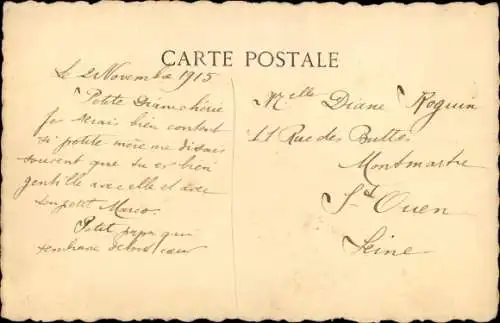 CARTE POSTALE
Le 2 Novembre 1915
Petite Diane chérie
je serais bien content
si petite mère me disais
souvent que tu es bien
gentille avec elle et avec
ton petit Marco.
Petit papa qui
t'embrasse de tout cœur
Melle Diane Roguin
11 Rue des Buttes
Montmartre
St Ouen
Seine